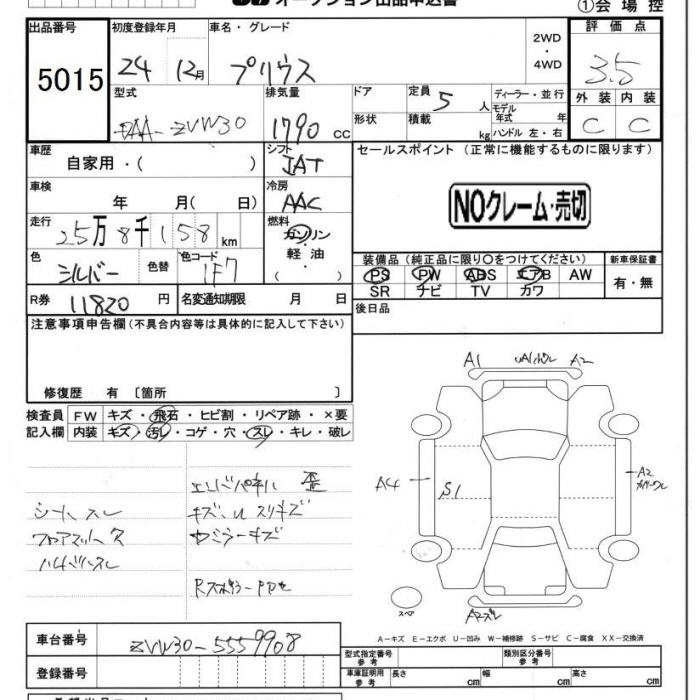 オークション出品申込書
①会場控
出品番号 初度登録年月 車名・グレード 評価点
5015
24 12月 プリウス
2WD
・
4WD
3.5
型式 排気量 ドア 定員 5人 ディーラー・並行
モデル年式 年
外装 内装
DAA-ZVW30 1790cc
形状 積載 kg ハンドル 左・右
C C
車歴 シフト セールスポイント(正常に機能するものに限ります)
自家用・( ) IAT
車検 冷房
年 月( 日) AAC
NOクレーム・売切
走行 燃料
25万8千158km ガソリン
色 色替 色コード 軽油
シルバー 1F7 ( )
装備品(純正品に限り○をつけてください) 新車保証書
PS PW ABS エアB AW 有・無
SR ナビ TV カワ
R券 11820円 名変通知期限 月 日
後日品
注意事項申告欄(不具合内容等は具体的に記入して下さい)
修復歴 有〔箇所 〕
検査員 FW キズ・飛石・ヒビ割・リペア跡・×要
記入欄 内装 キズ・汚レ・コゲ・穴・スレ・キレ・破レ
A1 A2
A4 S1 A2
エンドパネル 歪
シートスレ キズ
フロアマット欠
ハンドルスレ
スペア
A2スレ
A-キズ E-エクボ U-凹み W-補修跡 S-サビ C-腐食 XX-交換済
車台番号 ZVW30-5559908
型式指定番号 参考 類別区分番号 参考
登録番号
車庫証明用 参考 長さ cm 幅 cm 高さ cm